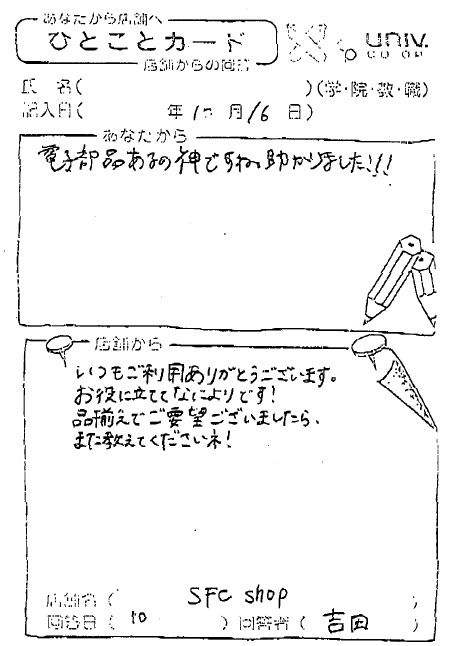 あなたから店舗へ
ひとことカード
店舗からの回答
univ.
CO-OP
氏 名( )(学・院・教・職)
記入日( 年 月16日)
あなたから
電子部品あるの神ですね。助かりました!!!
店舗から
いつもご利用ありがとうございます。
お役に立ててなによりです!
品揃えでご要望ございましたら、
また教えてくださいネ!
店舗名( SFC shop )
回答日( 10 ) 回答者( 吉田 )